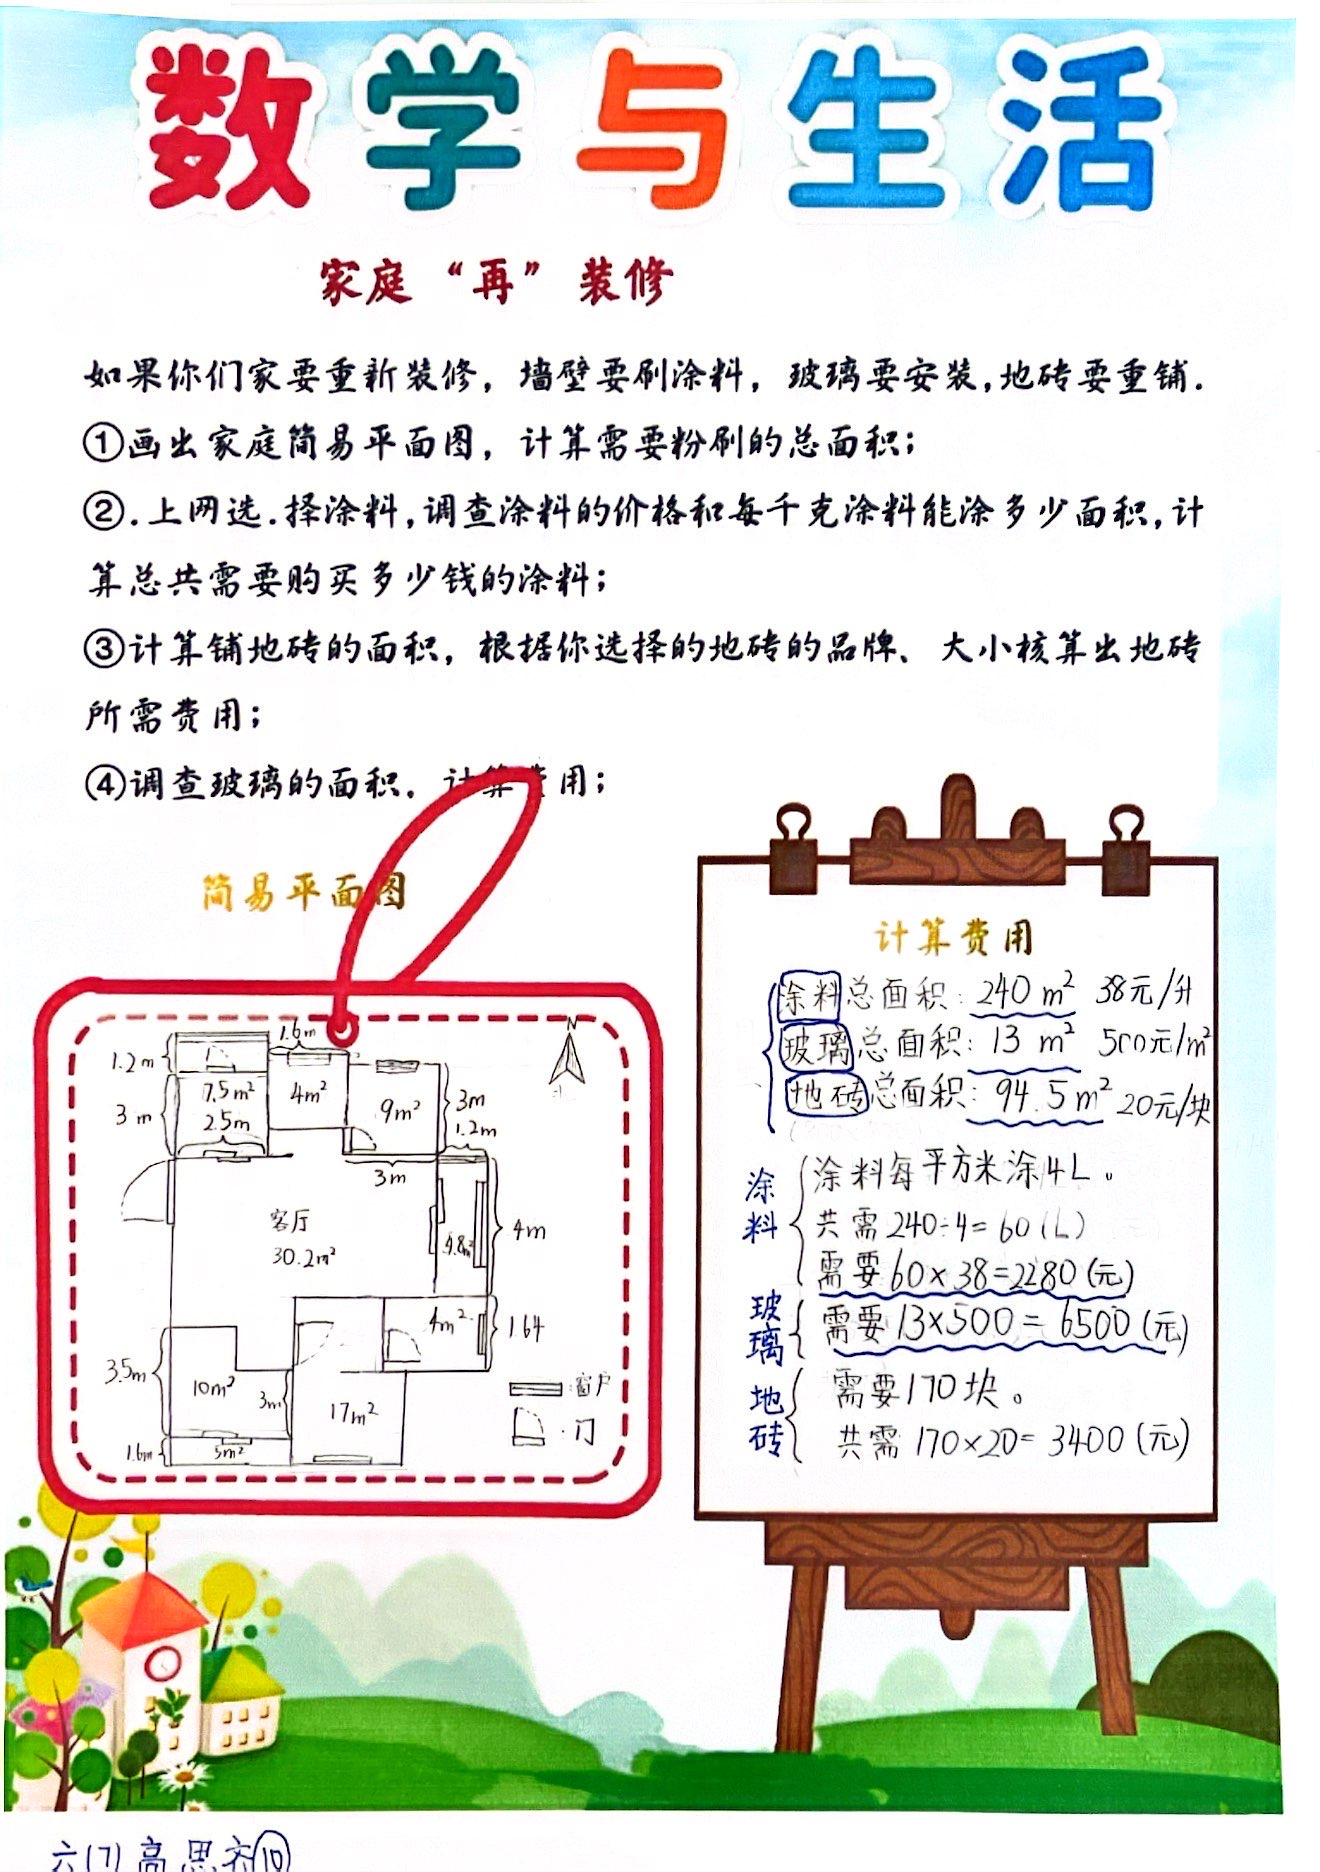 数学与生活
家庭“再”装修
如果你们家要重新装修，墙壁要刷涂料，玻璃要安装，地砖要重铺．
①画出家庭简易平面图，计算需要粉刷的总面积；
②．上网选．择涂料，调查涂料的价格和每千克涂料能涂多少面积，计
算总共需要购买多少钱的涂料；
③计算铺地砖的面积，根据你选择的地砖的品牌、大小核算出地砖
所需费用；
④调查玻璃的面积．计算费用；
简易平面图
N
1.6m
1.2m
7.5m²
4m²
9m²
3m
3m
2.5m
1.2m
3m
客厅
30.2m²
4.8m²
4m
4m²
1.64
3.5m
10m²
3m
17m²
1.6m
5m²
:窗户
:门
计算费用
涂料总面积：240m² 38元/升
玻璃总面积：13 m² 500元/m²
地砖总面积：94.5m² 20元/块
涂料
涂料每平方米涂4L。
共需240÷4=60(L)
需要60×38=2280(元)
玻璃
需要13×500=6500(元)
地砖
需要170块。
共需170×20=3400(元)
六(7)高思齐⑩